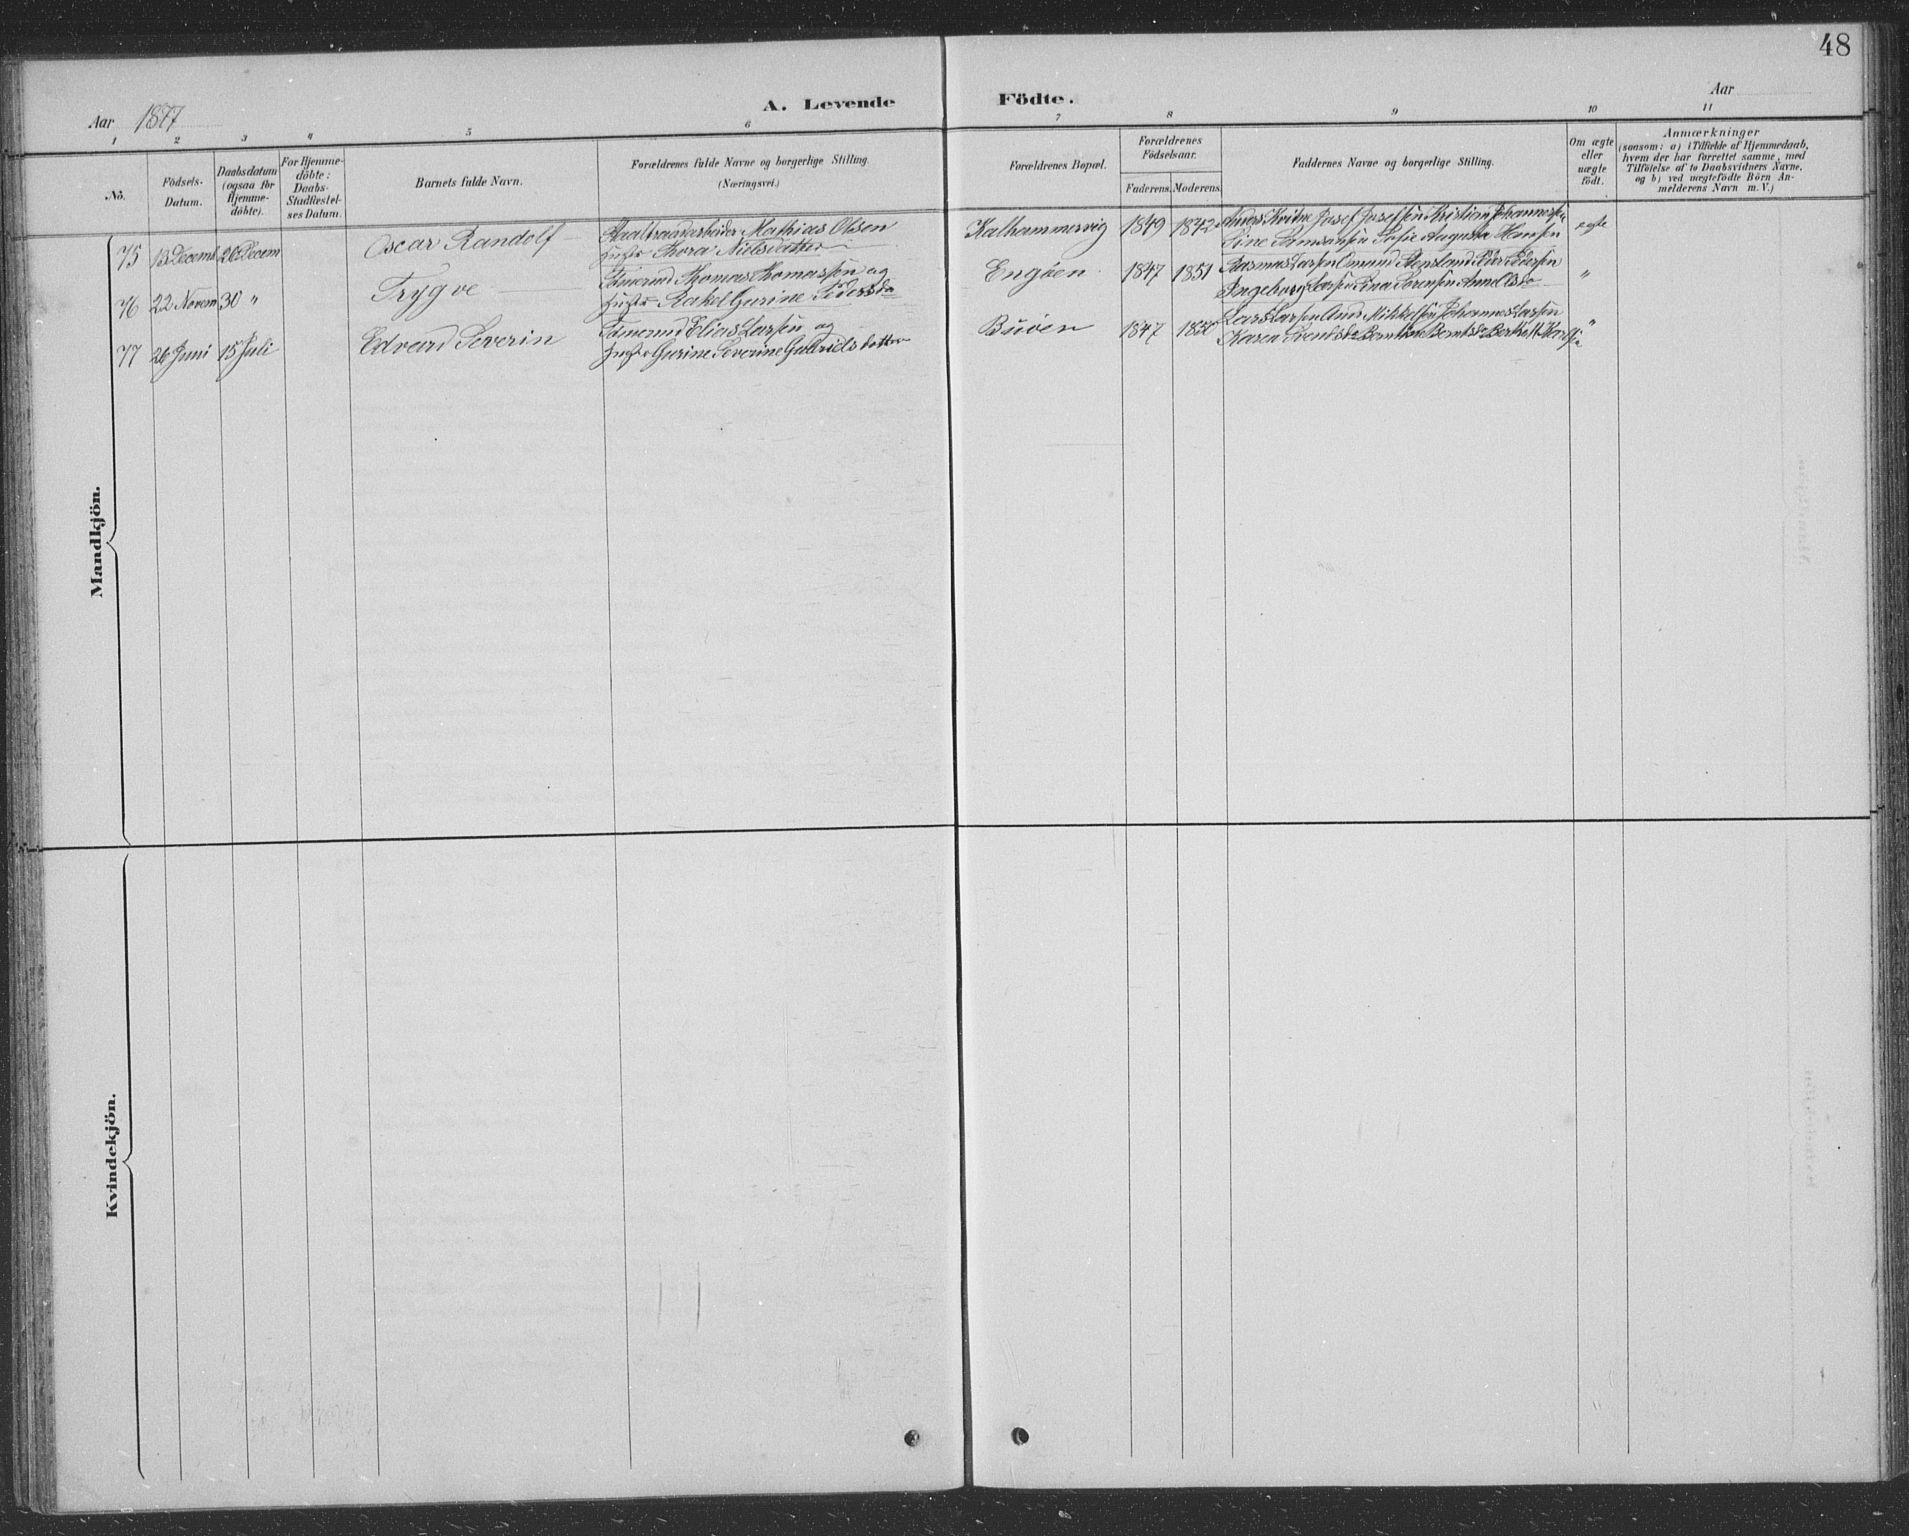 48
A. Levende Födte.
Aar 1877 Aar
1 2 3 4 5 6 7 8 9 10 11
No.
Födsels-
Datum.
Daabsdatum
(ogsaa for
Hjemme-
döbte).
For Hjemme-
döbte:
Daabs-
Stadfestel-
ses Datum.
Barnets fulde Navn.
Forældrenes fulde Navne og borgerlige Stilling.
(Næringsvei.)
Forældrenes Bopæl.
Forældrenes
Födselsaar.
Faderens. Moderens.
Faddernes Navne og borgerlige Stilling.
Om ægte
eller
uægte
födt.
Anmærkninger
(saasom: a) i Tilfælde af Hjemmedaab,
hvem der har forrettet samme, med
Tilföielse af to Daabsvidners Navne,
og b) ved uægtefödte Börn An-
melderens Navn m. V.)
Mandkjön.
75 13 Decemb 26 Decem Oscar Randolf Mathias Olsen
Thora Nielsdatter Kalhammervig 1849 1842 Josef Josefsen Kristian Johannessen
Sofie Augusta Hansen egte
76 22 Novem 30 " Trygve Tomas Thomassen og
Rakel Gurine Pedersda Engöen 1847 1851 Rasmus Larsen Omund Peder Pedersen
Ingeborg Larsen Tina Sörensen "
77 26 Juni 15 Juli Edvard Severin Elias Larsen og
Gurine Severine Gabrielsdatter Buöen 1847 Lars Larsen Mikkelsen Johannes Larsen
Karen "
Kvindekjön.